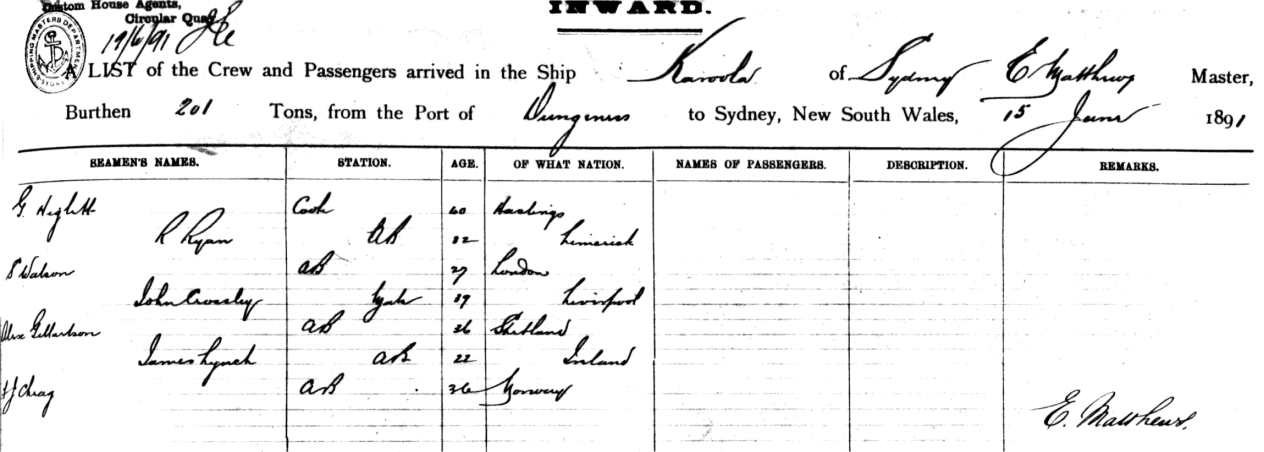 Custom House Agents,
INWARD.
Circular Quay
19/6/91
SHIPPING MASTERS DEPARTMENT
A LIST of the Crew and Passengers arrived in the Ship Karoola of Sydney E Matthews Master,
Burthen 201 Tons, from the Port of Dungeness to Sydney, New South Wales, 15 June 1891
SEAMEN'S NAMES. STATION. AGE. OF WHAT NATION. NAMES OF PASSENGERS. DESCRIPTION. REMARKS.
G. Cook 40 Hastings
R Ryan AB 32 Limerick
S Watson AB 27 London
John Crossley 39 Liverpool
Alex AB 26 Shetland
James Lynch AB 22 Ireland
AB 36 Norway
E. Matthews.